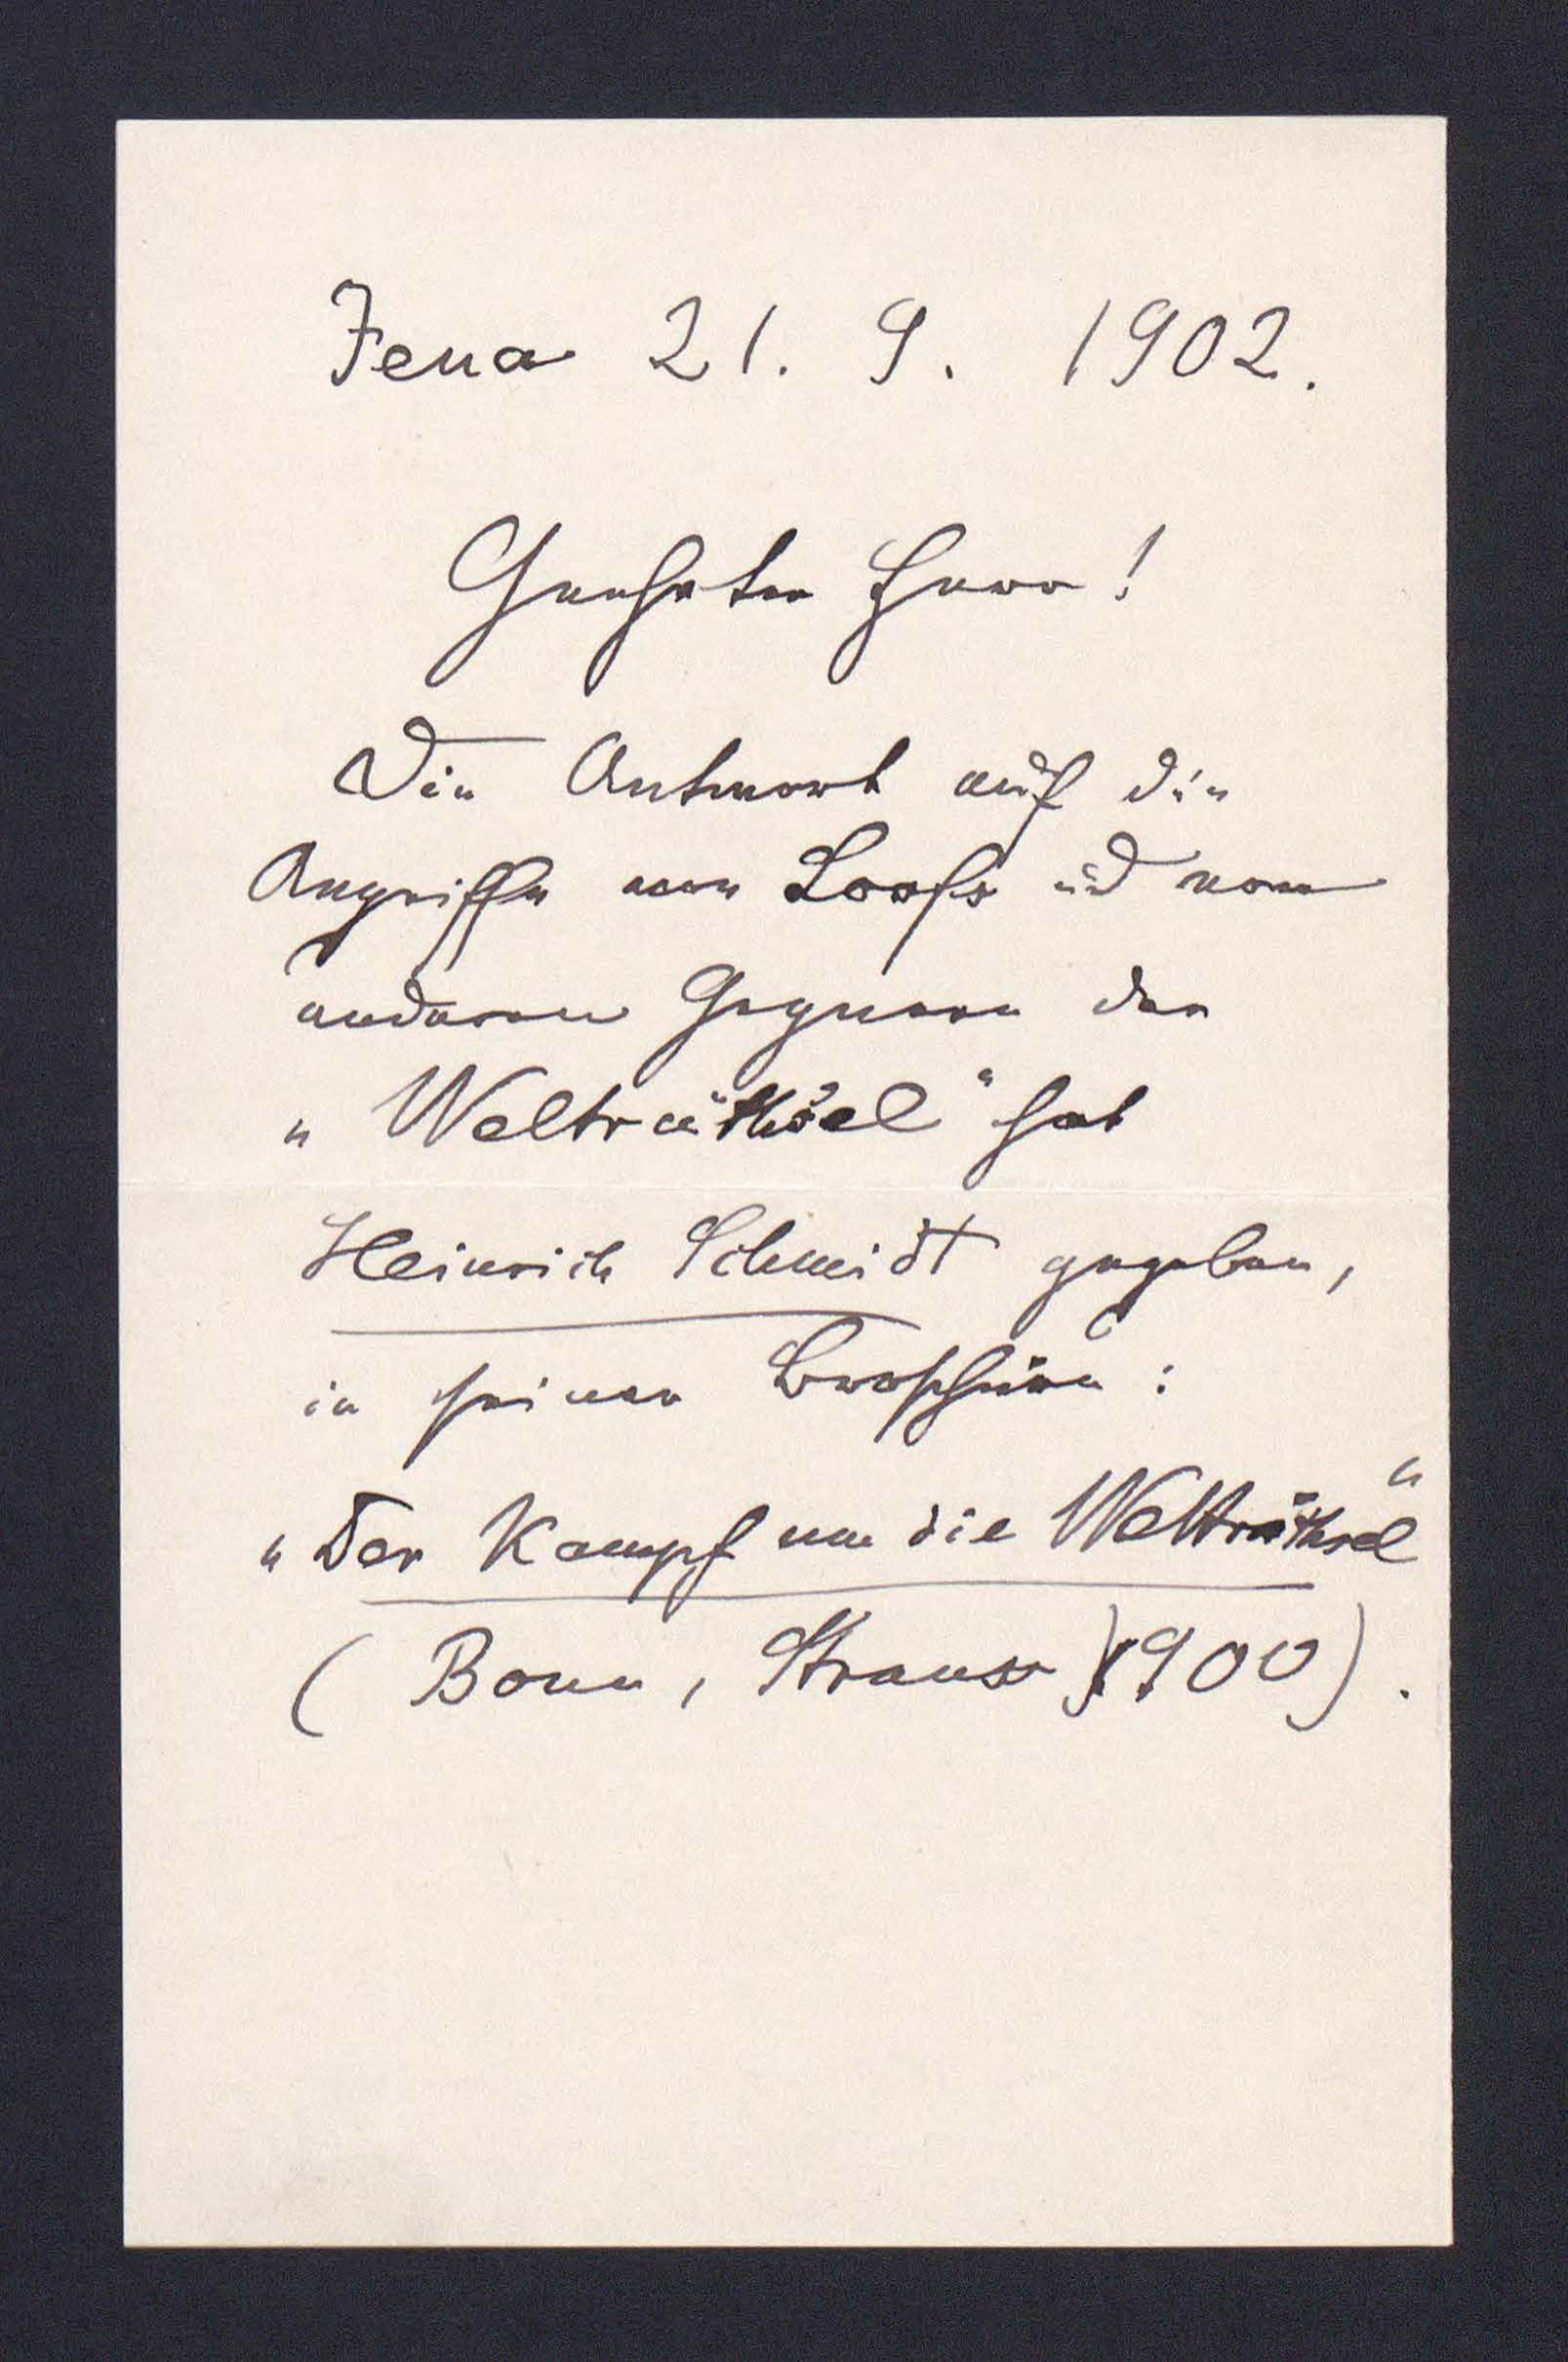 Jena 21. 9. 1902.
Geehrter Herr!
Die Antwort auf die
Angriffe von Loofs und von
anderen Gegnern der
„Welträthsel" hat
Heinrich Schmidt gegeben,
in seiner Broschüre:
„Der Kampf um die Welträthsel"
(Bonn, Strauss 1900).